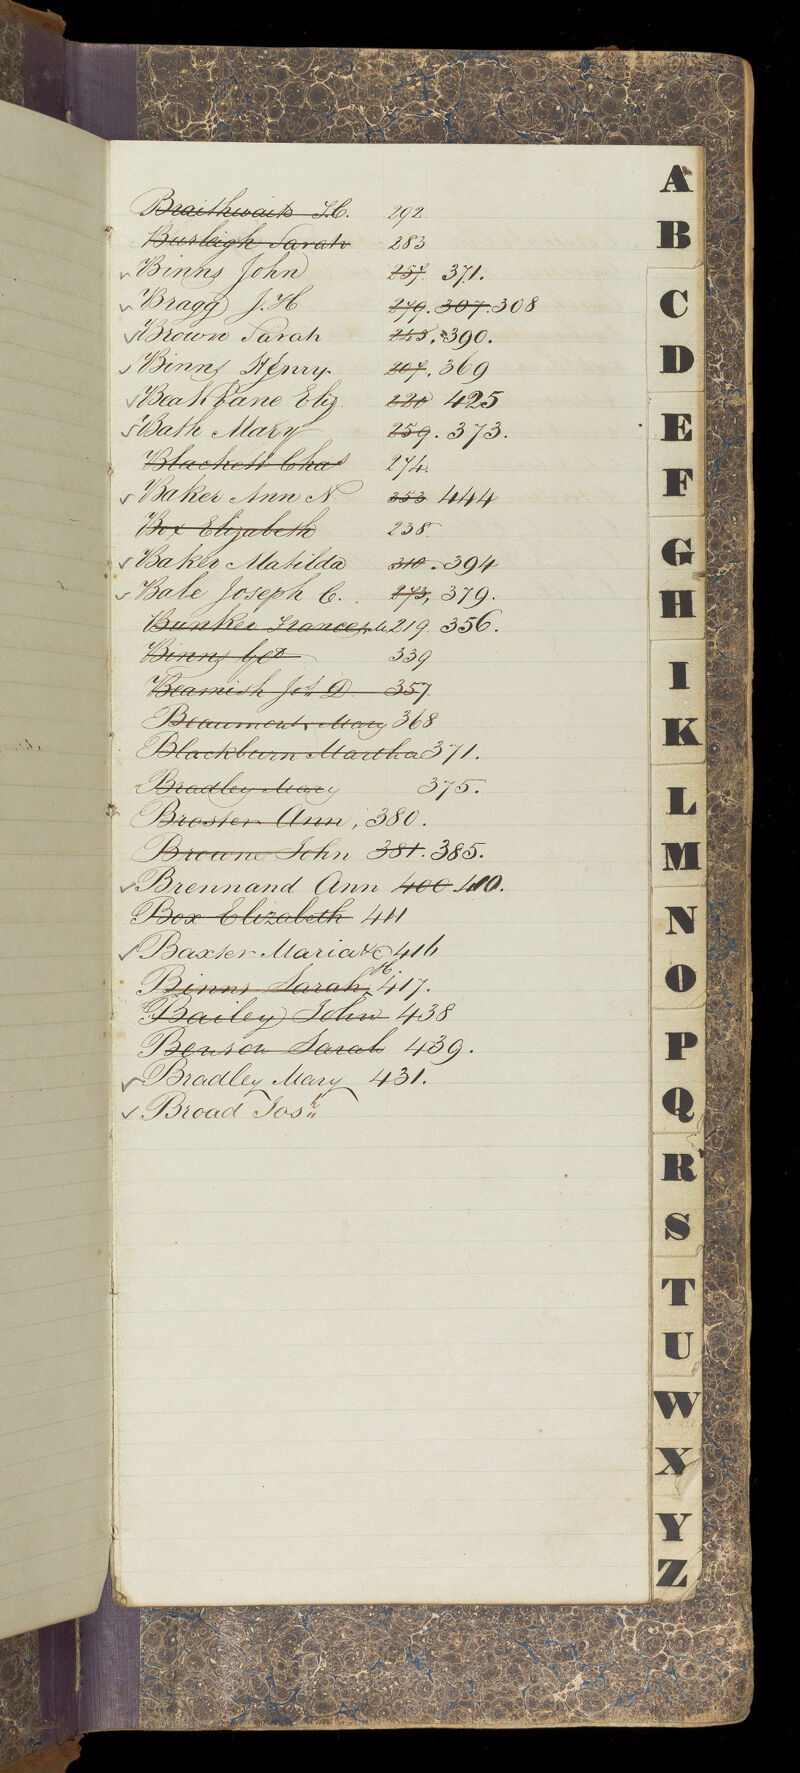 Braithwaite J.C. 292
Burleigh Sarah 283
Binns John 257. 371.
Bragg J. H 270. 307. 308
Brown Sarah 245. 390.
Binns Henry. 207. 369
Beak Jane Eliz. 220 425
Bath Mary 259. 373.
Blackett Chas 274.
Baker Ann N 353 444
Box Elizabeth 238
Baker Matilda 310. 394
Bale Joseph C. 273, 379.
Bunker Frances 219. 356.
Binns Geo 339
Beamish Jos D 357
Beaumont Mary 368
Blackburn Martha 371.
Bradley Mary 375.
Broster Ann, 380.
Browne John 381. 385.
Brennand Ann 400. 410.
Box Elizabeth 411
Baxter Maria &c 416
Binns Sarah H. 417.
Bailey John 438
Benson Sarah 439.
Bradley Mary 431.
Broad Josh
A
B
C
D
E
F
G
H
I
K
L
M
N
O
P
Q
R
S
T
U
W
X
Y
Z